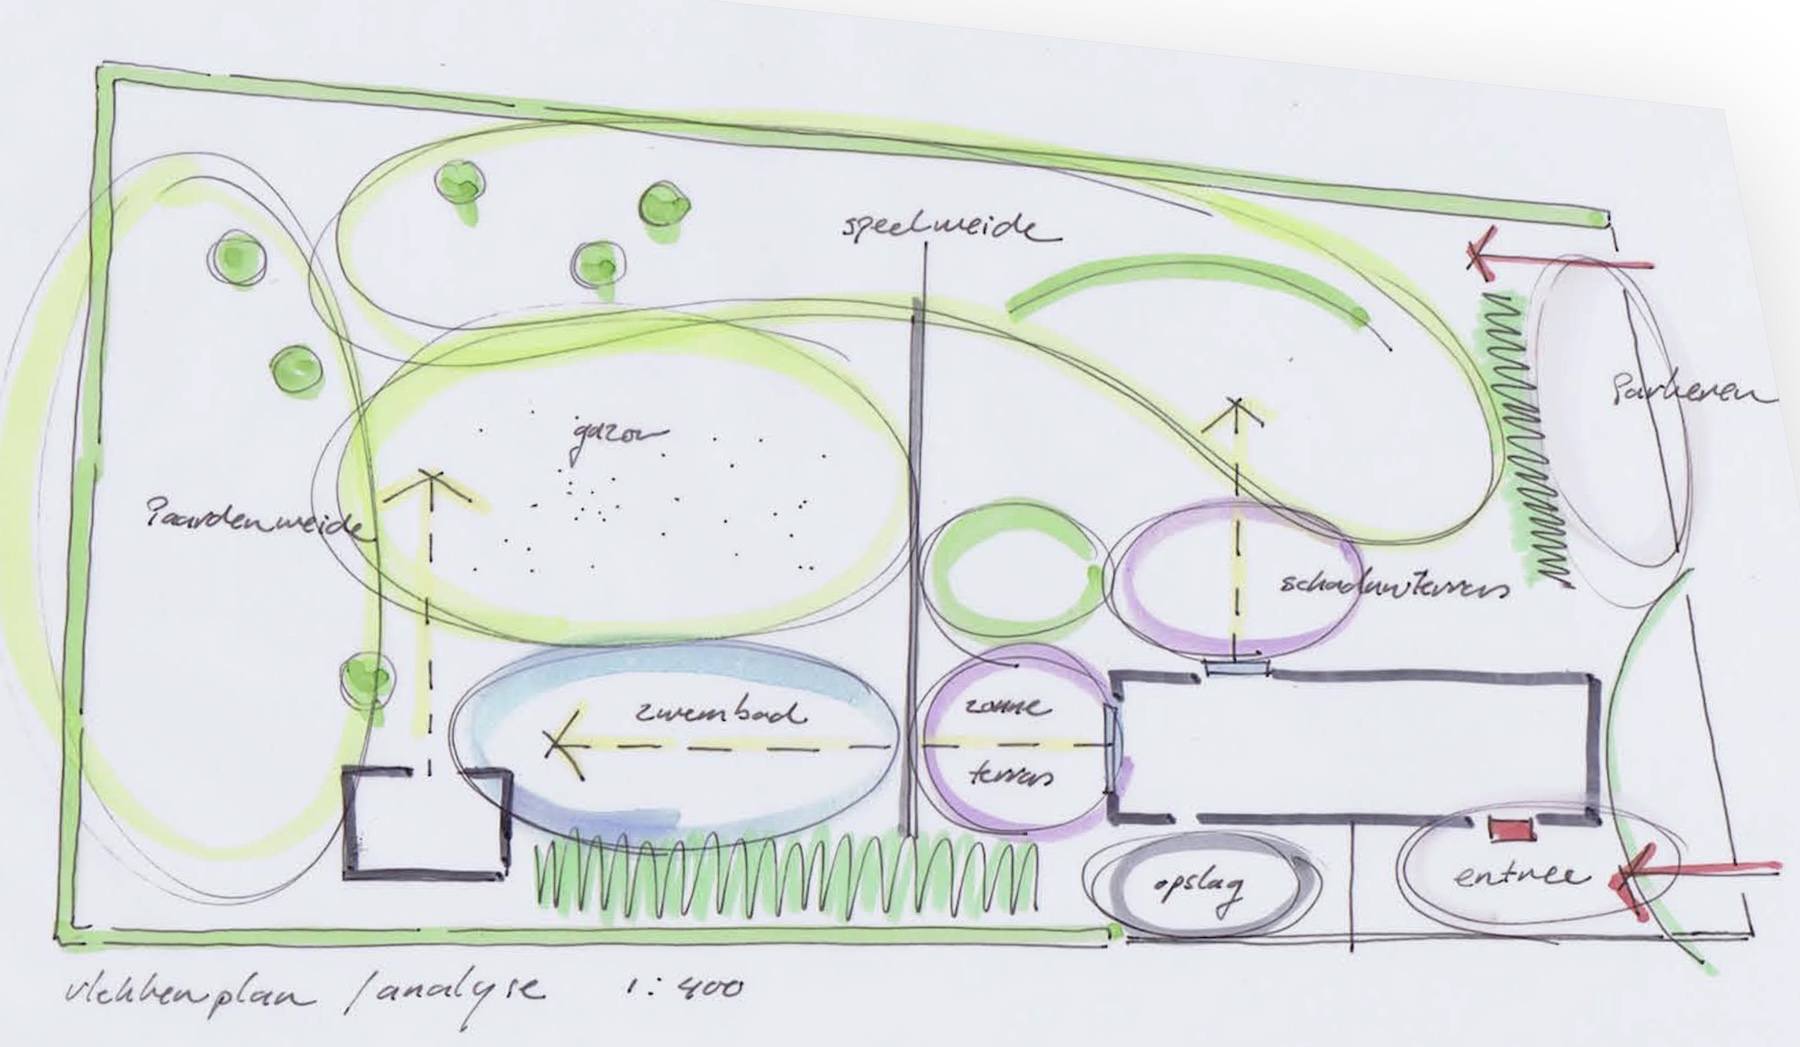 speelweide
Parkeren
gazon
Paardenweide
schaduwterras
zwembad
zonne
terras
opslag
entree
vlekkenplan / analyse 1:400